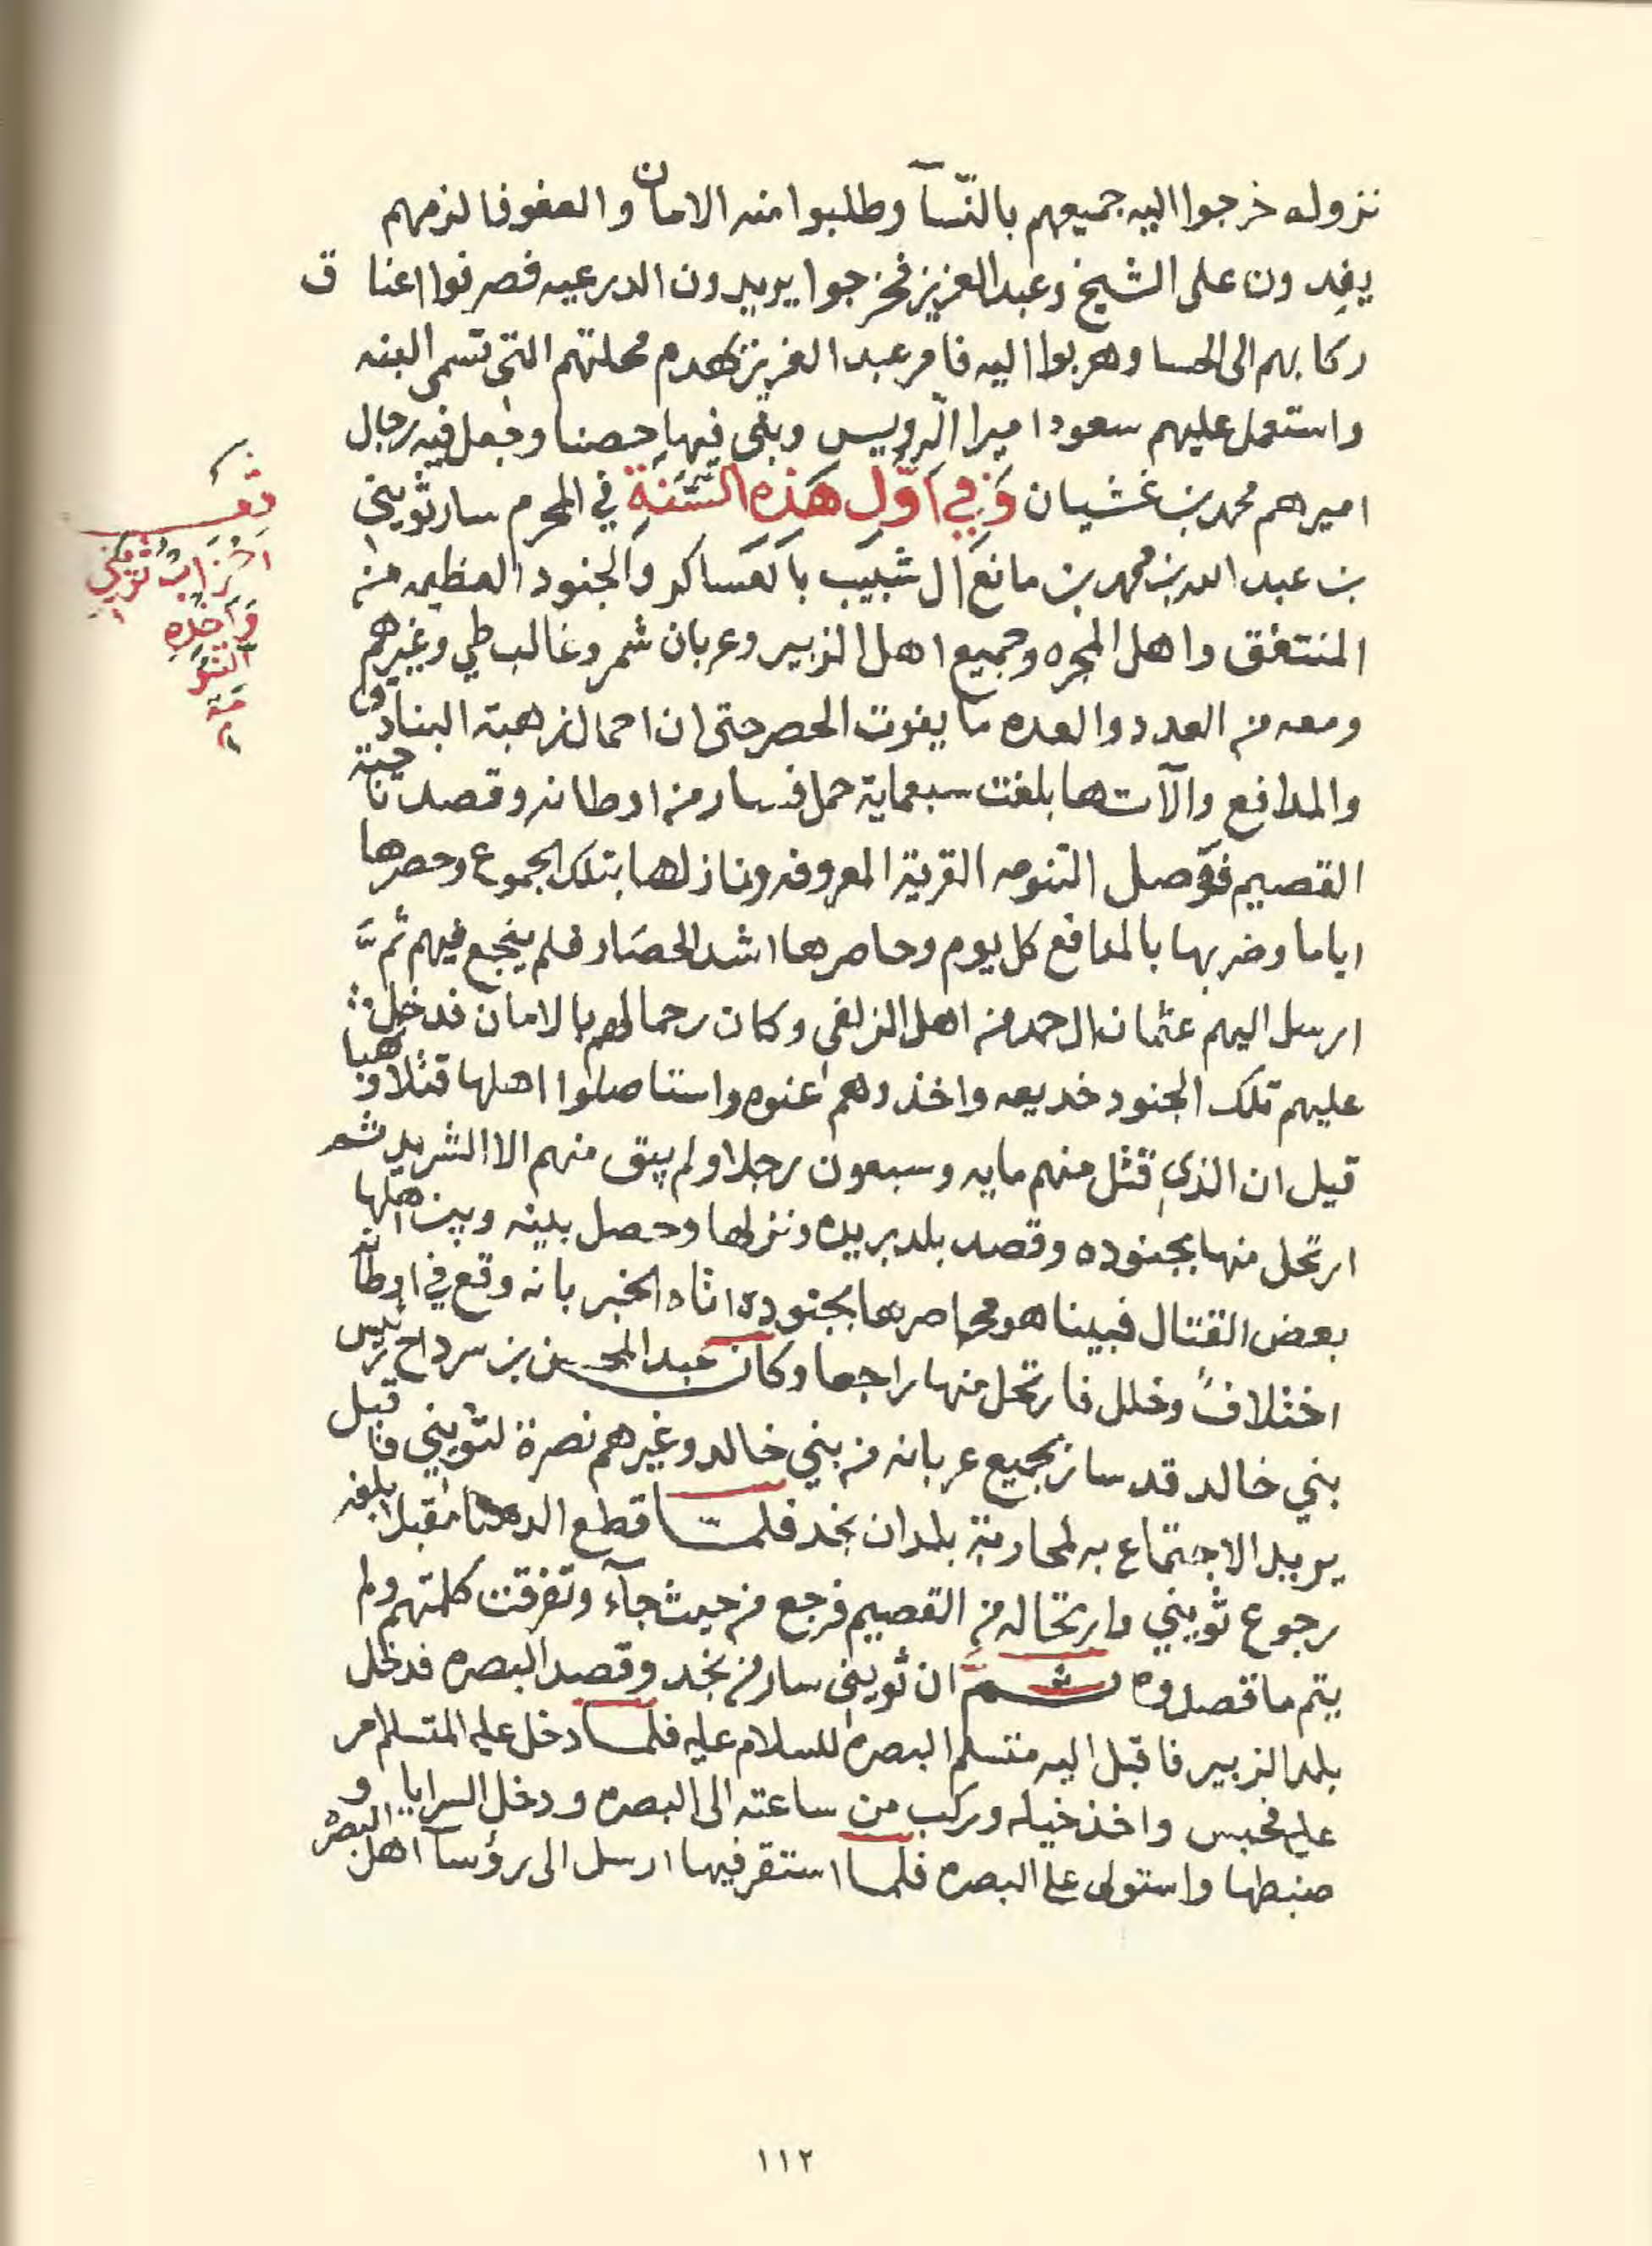 نزوله خرجوا اليه جميعهم بالنسآ وطلبوا منه الامان والعفو فالزمهم
يفدون على الشيخ وعبد العزيز فخرجوا يريدون الدرعيه فصرفوا اعناق
ركابهم الى الحسا وهربوا اليه فامر عبد العزيز بهدم محلتهم التى تسمى البنه
واستعمل عليهم سعود اميرا الدويس وبنى فيها حصنا وجعل فيه رجال
اميرهم محمد بن غشيان وَفِي اَوّلِ هَذِهِ السَّنَةِ في المحرم سار ثويني
بن عبد الله بن محمد بن مانع آل شبيب بالعساكر والجنود العظيمه من
المنتفق واهل المجره وجميع اهل الزبير وعربان شمر وغالب طي وغيرهم
ومعه من العدد والعده ما يفوت الحصر حتى ان احمال زهبة البنادق
والمدافع وآلاتها بلغت سبعماية حمل فسار من اوطانه وقصد ناحية
القصيم فوصل التنومه القرية المعروفه ونازلها بتلك الجموع وحصرها
اياما وضربها بالمدافع كل يوم وحاصرها اشد الحصار فلم ينجع فيهم ثمَّ
ارسل اليهم عثمان ال حمد من اهل الزلفي وكان رحما لهم بالامان فدخلت
عليهم تلك الجنود خديعه واخذوهم عنوه واستاصلوا اهلها قتلا ونهبا
قيل ان الذي قتل منهم مايه وسبعون رجلا ولم يبق منهم الا الشريد ثم
ارتحل منها بجنوده وقصد بلد بريده ونزلها وحصل بينه وبين اهلها
بعض القتال فبينا هو محاصرها بجنوده اتاه الخبر بانه وقع في اوطانه
اختلافٌ وخلل فارتحل منها راجعا وكان عبد المحسن بن سرداح رئيس
بني خالد قد سار بجميع عربانه من بني خالد وغيرهم نصرة لثويني فاقبل
يريد الاجتماع به لمحاربة بلدان نجد فلما قطع الدهنا مقبلا بلغه
رجوع ثويني وارتحاله من القصيم فرجع من حيث جآء وتفرقت كلمتهم ولم
يتم ما قصدوه ثـمّ ان ثويني سار من نجد وقصد البصره فدخل
بلد الزبير فاقبل اليه متسلم البصره للسلام عليه فلما دخل عليه المتسلم امر
عليه فحبس واخذ خيله وركب من ساعته الى البصره ودخل السرايا و
ضبطها واستولى على البصره فلما استقر فيها ارسل الى رؤسآ اهل البصره
احزاب ثويني
واخذه
التنو
مة
١١٢